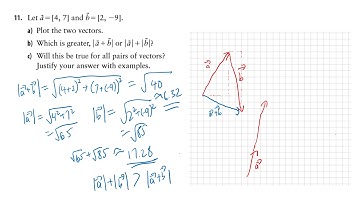 11. Let a⃗ = [4, 7] and b⃗ = [2, −9].
a) Plot the two vectors.
b) Which is greater, |a⃗ + b⃗| or |a⃗| + |b⃗|?
c) Will this be true for all pairs of vectors?
Justify your answer with examples.
|a⃗+b⃗| = √((4+2)² + (7+(-9))²) = √40
≈ 6.32
|a⃗| = √(4²+7²) |b⃗| = √(2²+(-9)²)
= √65 = √85
√65 + √85 ≈ 17.28
|a⃗|+|b⃗| > |a⃗+b⃗|
a⃗
b⃗
a⃗+b⃗
a⃗